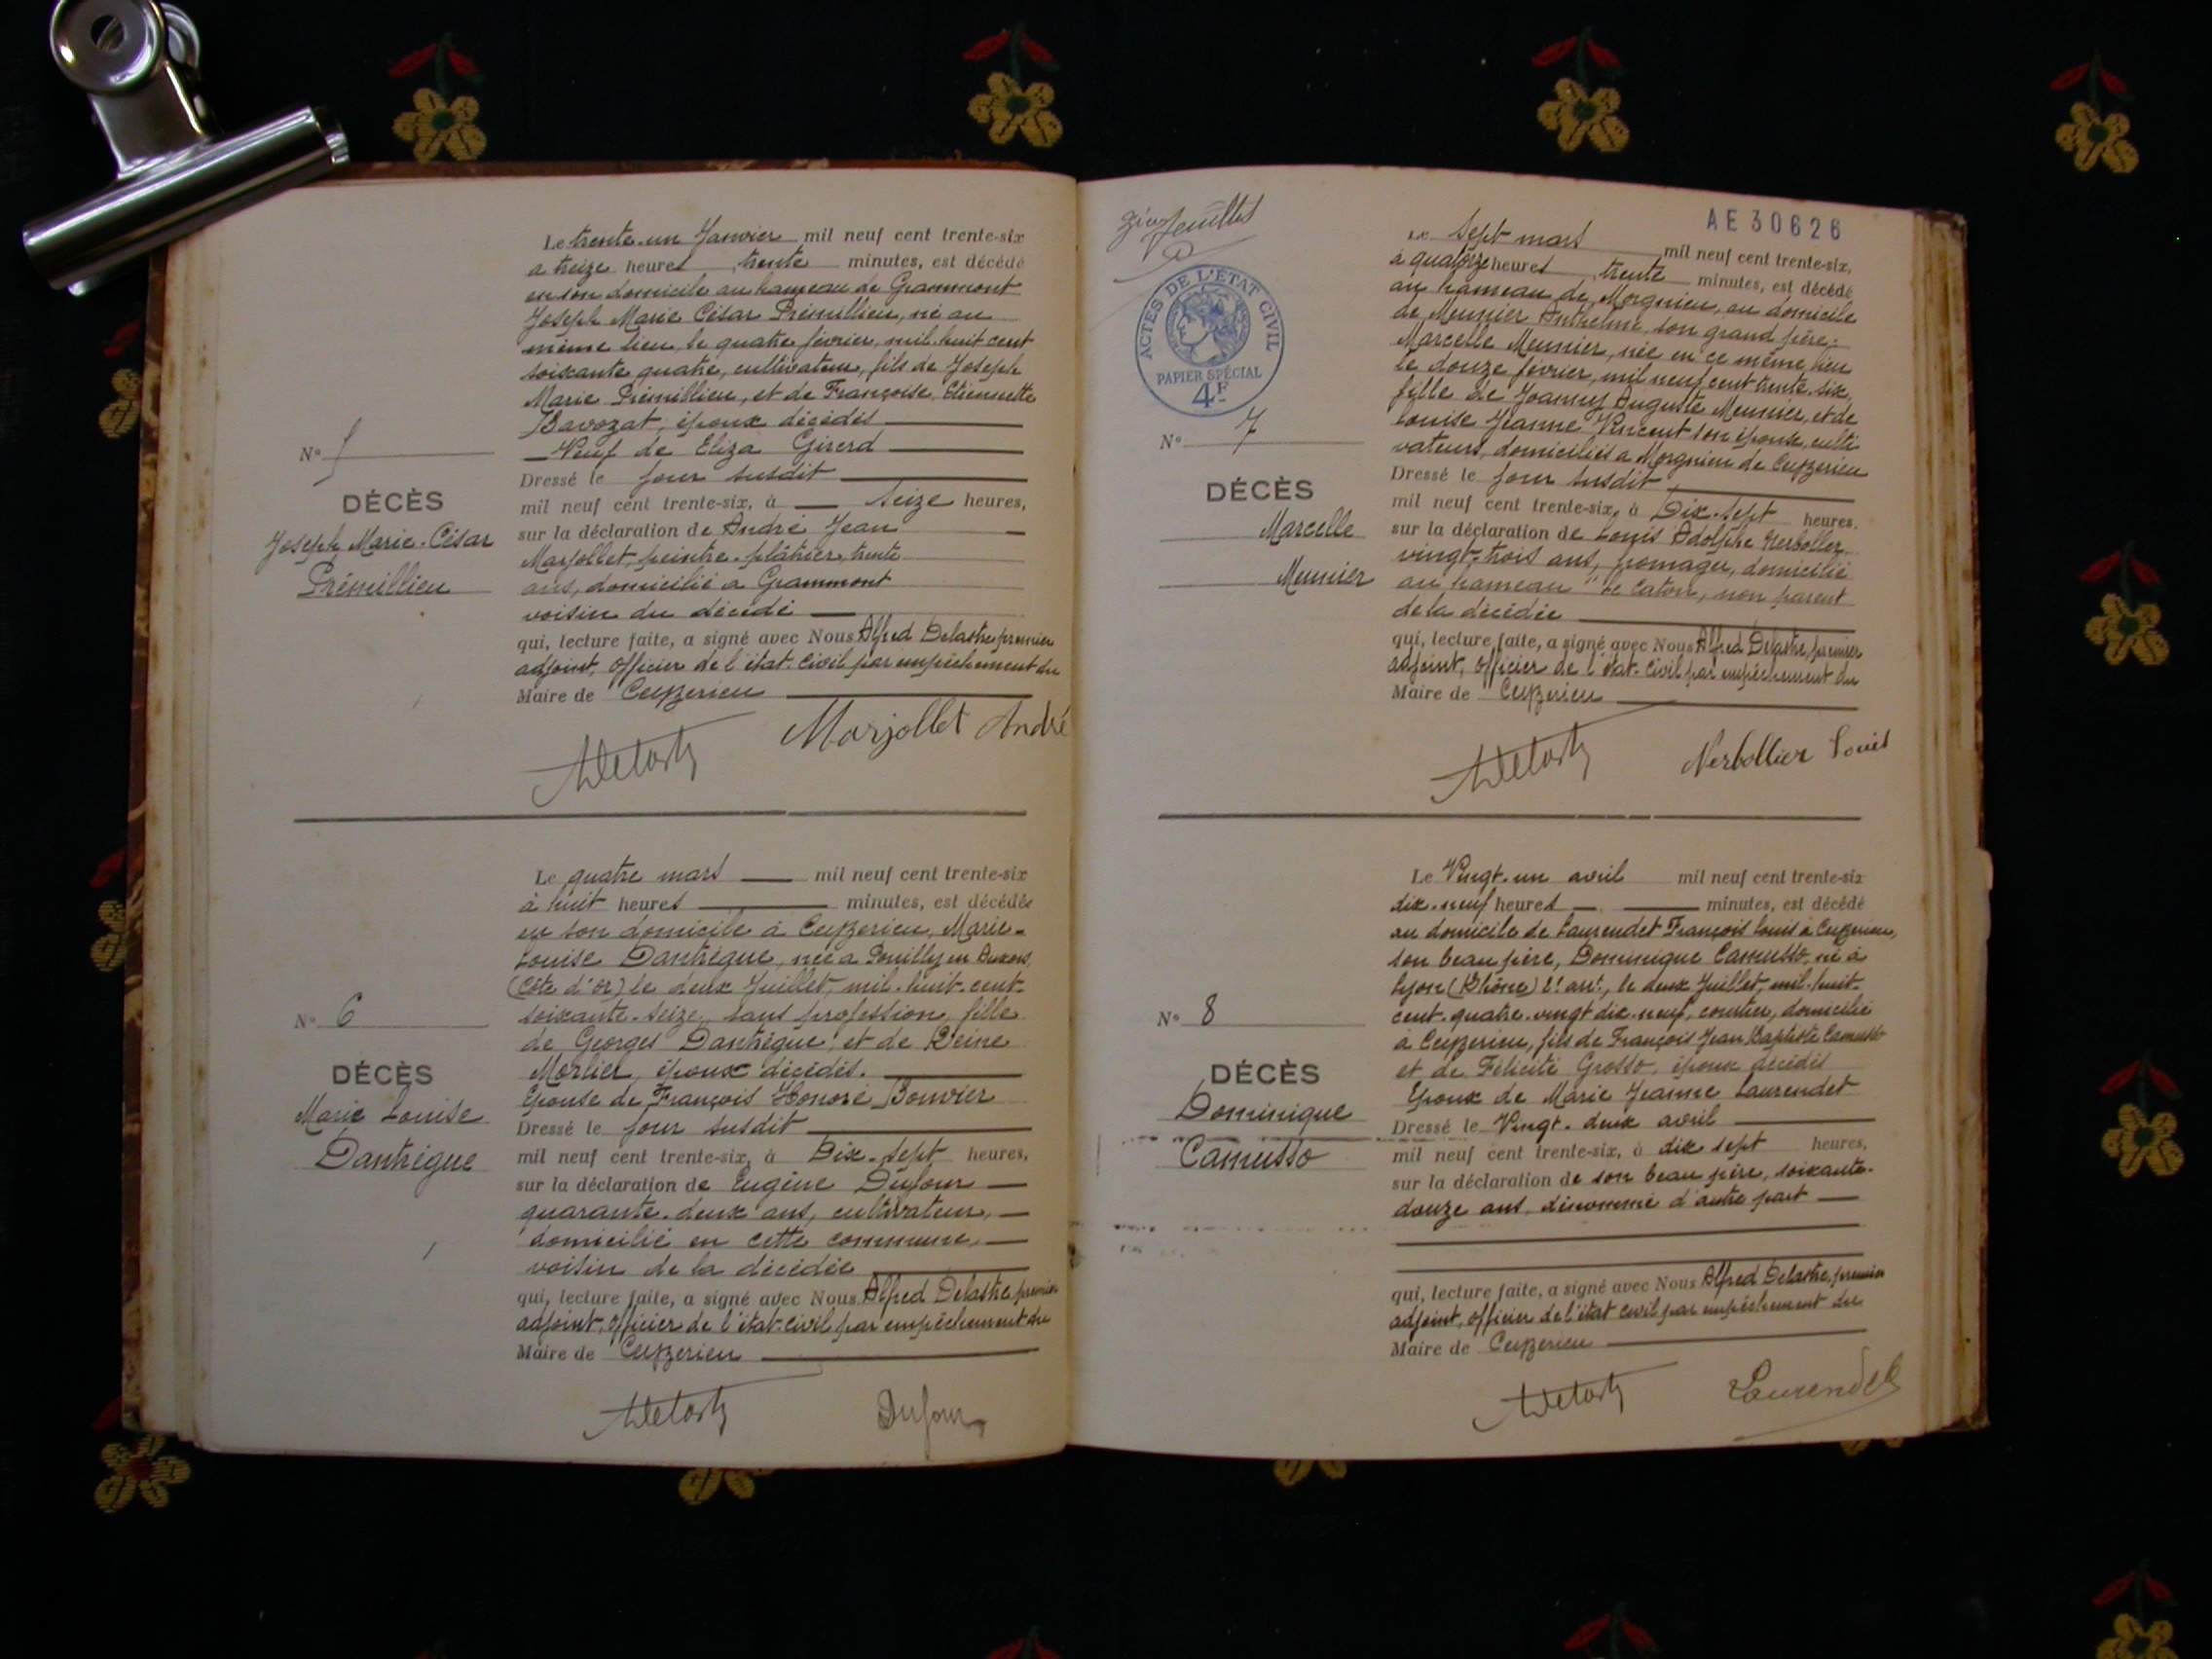 Le trente-un Janvier mil neuf cent trente-six
a treize heures trente minutes, est décédé
en son domicile au hameau de Grammont
Joseph Marie César Prémillieu, né au
même lieu, le quatre février, mil huit cent
soixante quatre, cultivateur, fils de Joseph
Marie Prémillieu, et de Françoise Etiennette
Bavozat, époux décédés
Veuf de Eliza Girerd
Dressé le jour susdit
mil neuf cent trente-six, à seize heures,
sur la déclaration de André Jean
Marjollet, peintre-plâtrier, trente
ans, domicilié a Grammont
voisin du décédé
qui, lecture faite, a signé avec Nous Alfred Delastre premier
adjoint, officier de l'état-civil par empêchement du
Maire de Ceyzerieu
Marjollet André
N° 5
DÉCÈS
Joseph Marie-César
Prémillieu
Le quatre mars mil neuf cent trente-six
à huit heures minutes, est décédée
en son domicile à Ceyzerieu, Marie-
Louise Dantrègue, née a Pouilly en Auxois
(Côte d'or) le deux Juillet, mil-huit-cent-
soixante-seize, sans profession, fille
de Georges Dantrègue, et de Reine
Morlier, époux décédés.
Epouse de François Honoré Bouvier
Dressé le jour susdit
mil neuf cent trente-six, à Dix-sept heures,
sur la déclaration de Eugène Dufour
quarante-deux ans, cultivateur,
domicilié en cette commune,
voisin de la décédée
qui, lecture faite, a signé avec Nous Alfred Delastre, premier
adjoint, officier de l'état-civil par empêchement du
Maire de Ceyzerieu
Dufour
N° 6
DÉCÈS
Marie Louise
Dantrègue
feuillet
AE30626
ACTES DE L'ÉTAT CIVIL
PAPIER SPÉCIAL
4F
Le sept mars mil neuf cent trente-six,
a quatorze heures trente minutes, est décédé
au hameau de Morgnieu, au domicile
de Meunier Anthelme, son grand père:
Marcelle Meunier, née en ce même lieu
le douze février, mil neuf cent trente-six,
fille de Joanny Auguste Meunier, et de
Louise Jeanne Vincent son épouse, culti
vateurs, domiciliés a Morgnieu de Ceyzerieu
Dressé le jour susdit
mil neuf cent trente-six, à Dix-sept heures.
sur la déclaration de Louis Adolphe Nerbollier
vingt-trois ans, fromager, domicilié
au hameau "le Caton, non parent
de la décédée
qui, lecture faite, a signé avec Nous Alfred Delastre, premier
adjoint, officier de l'état-civil par empêchement du
Maire de Ceyzerieu
Nerbollier Louis
N° 7
DÉCÈS
Marcelle
Meunier
Le Vingt-un avril mil neuf cent trente-six
dix-neuf heures minutes, est décédé
au domicile de Laurendet François Louis à Ceyzerieu,
son beau père, Dominique Camusso, né à
Lyon (Rhône) 2e arrt, le deux Juillet, mil-huit-
cent-quatre-vingt dix-neuf, courtier, domicilié
à Ceyzerieu, fils de François Jean Baptiste Camusso
et de Félicité Grosso, époux décédés
Epoux de Marie Jeanne Laurendet
Dressé le Vingt-deux avril
mil neuf cent trente-six, à dix sept heures,
sur la déclaration de son beau père, soixante-
douze ans, dénommé d'autre part
qui, lecture faite, a signé avec Nous Alfred Delastre, premier
adjoint, officier de l'état civil par empêchement du
Maire de Ceyzerieu
Laurendet
N° 8
DÉCÈS
Dominique
Camusso